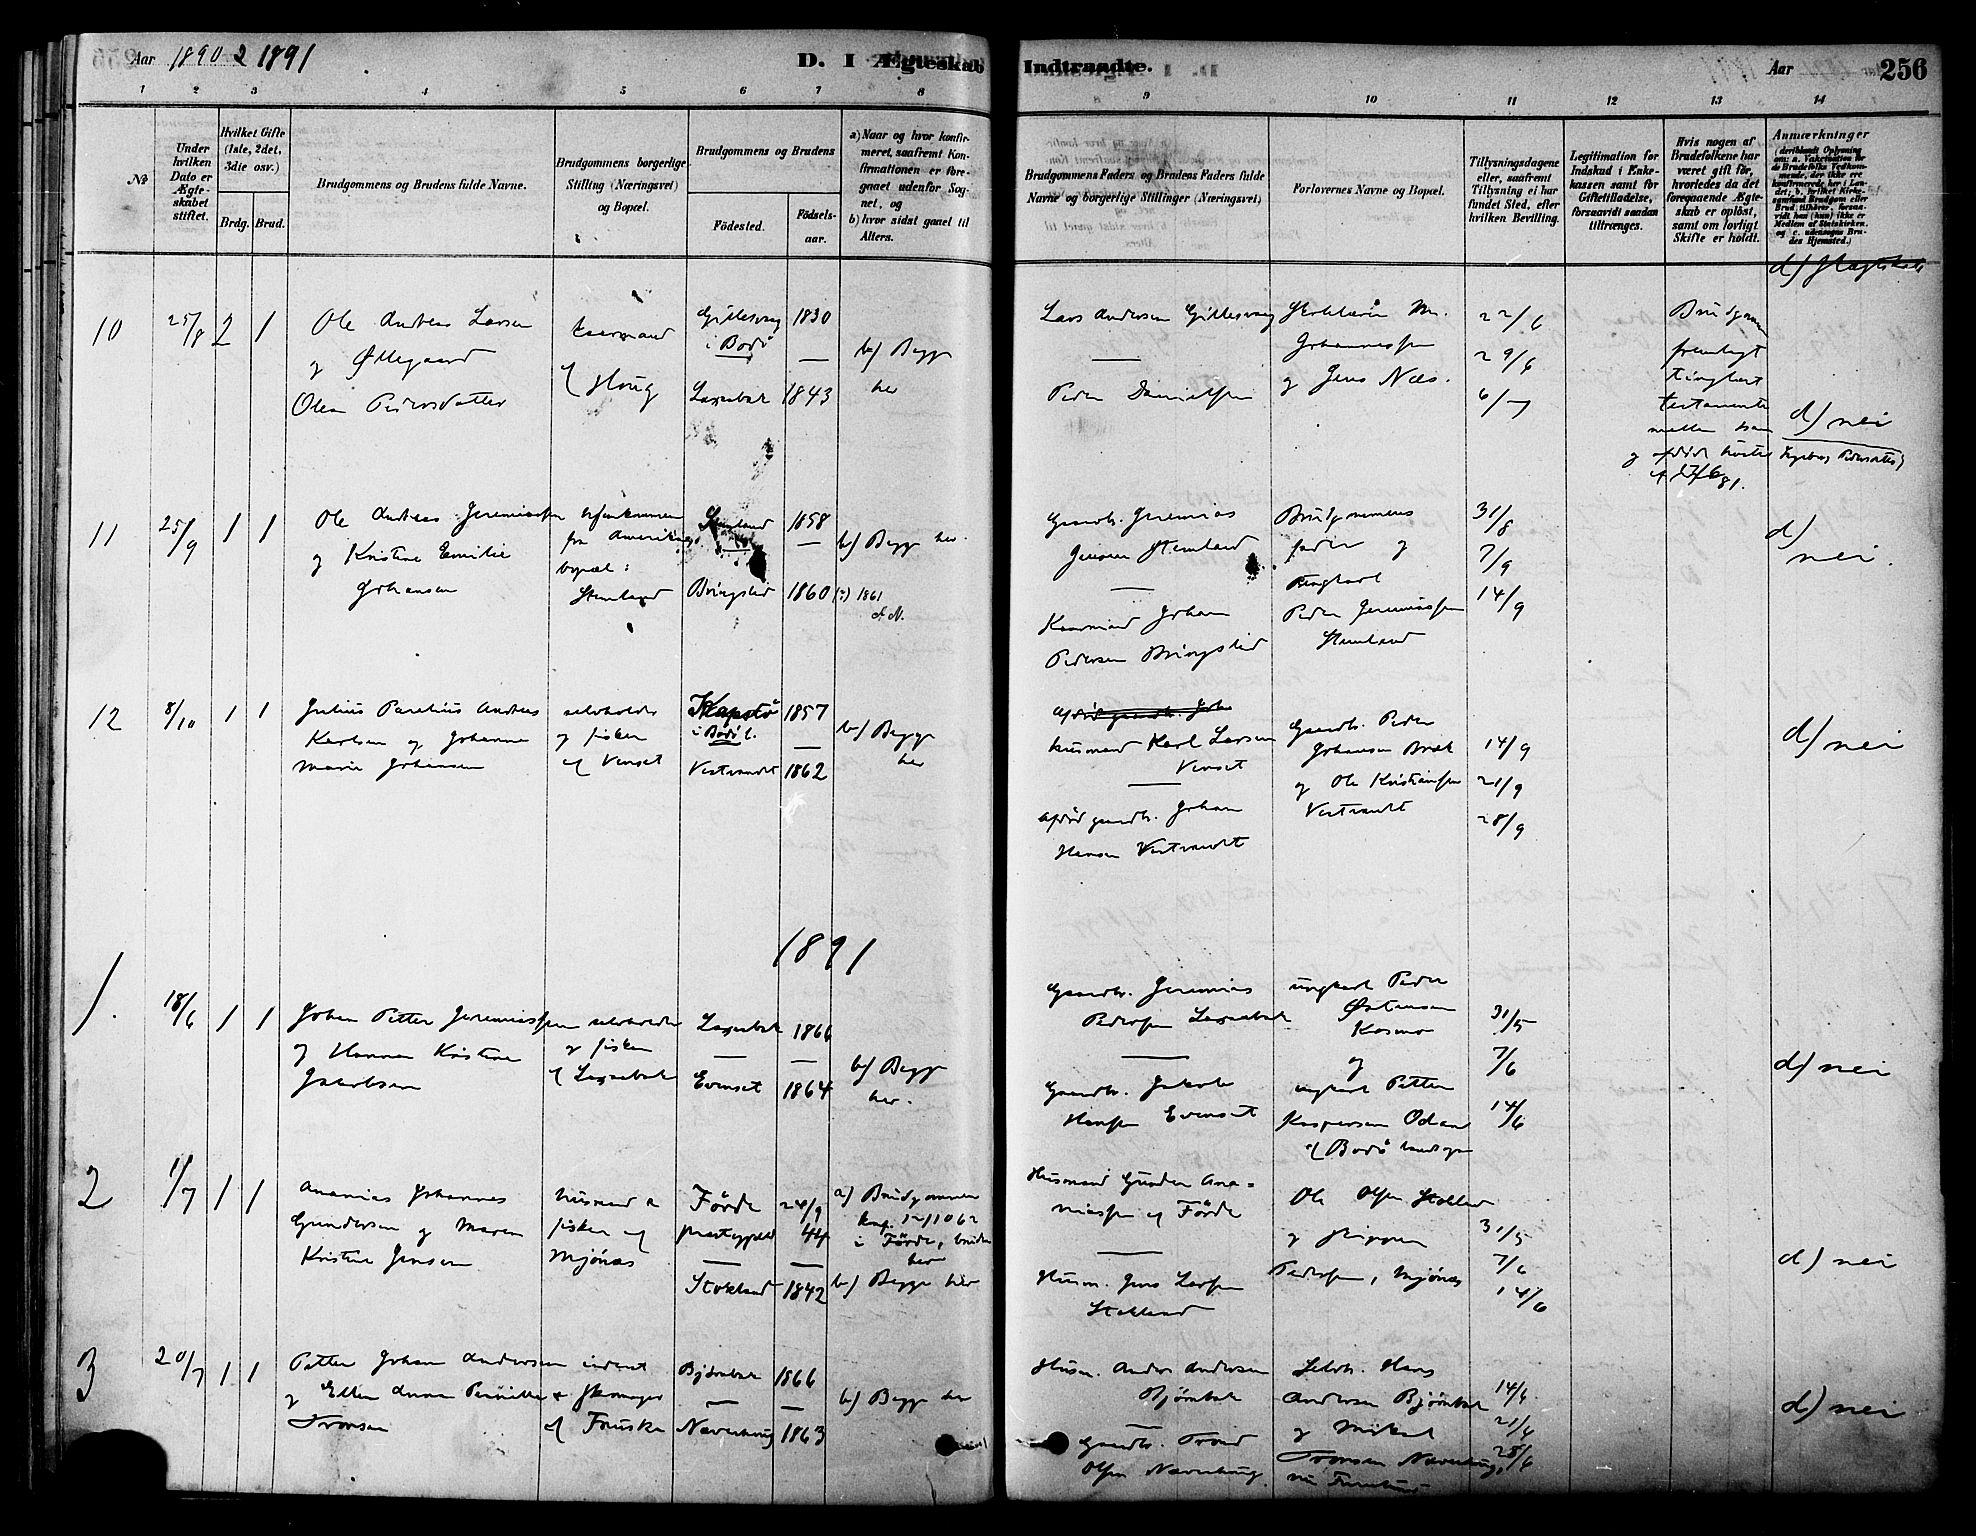 Aar 1890 2 1891
D. I Ægteskab Indtraadte.
Aar 256
1 2 3 4 5 6 7 8 9 10 11 12 13 14
No
Under hvilken Dato er Ægteskabet stiftet.
Hvilket Gifte (1ste, 2det, 3die osv.)
Brdg. Brud.
Brudgommens og Brudens fulde Navne.
Brudgommens borgerlige Stilling (Næringsvei) og Bopæl.
Brudgommens og Brudens
Fødested.
Fødselsaar.
a) Naar og hvor konfirmeret, saafremt Konfirmationen er foregaaet udenfor Sognet, og
b) hvor sidst gaaet til Alters.
Brudgommens Faders og Brudens Faders fulde Navne og borgerlige Stillinger (Næringsvei)
Forlovernes Navne og Bopæl.
Tillysningsdagene eller, saafremt Tillysning ei har fundet Sted, efter hvilken Bevilling.
Legitimation for Indskud i Enkekassen samt for Giftetilladelse, forsaavidt saadan tiltrænges.
Hvis nogen af Brudefolkene har været gift før, hvorledes da det foregaaende Ægteskab er opløst, samt om lovligt Skifte er holdt.
Anmærkninger
10 25/8 2 1
Ole Andreas Larsen
og Øllegaard
Olea Pedersdatter
kaarmand
af Houg
Gillesvaag
i Bodø
1830
—
1843
b) Begge
her
Lars Andersen Gillesvaag
—
Peder Danielsen
Johannessen
og Jens Næs.
22/6
29/6
6/7
Brudgommen
fremlagt
tinglæst
testamente
mellem ham
og afdød hustru
d) nei
11 25/9 1 1
Ole Andreas Jeremiassen
og Kristine Emilie
Johansen
fra Amerika,
bopæl:
Stemland
Stemland
Bringslid
1858
—
1860 (?) 1861
b) Begge her.
Gaardb. Jeremias
Jensen Stemland
—
Kaarmand Johan
Pedersen Bringslid
Brudgommens
fader og
Ungkarl
Peder Jeremiassen
Stemland
31/8
7/9
14/9
d)
nei.
12 8/10 1 1
Julius Parelius Andreas
Karlsen og Johanna
Marie Johansen
selveholder
og fisker
af Venset
Klapstø
i Bodø l.
Vestvandet
1857
—
1862
b) Begge
her
husmand Karl Larsen
Venset
—
afdød gaardb. Johan
Hansen Vestvandet
Gaardb. Peder
Johansen Bræk
og Ole Kristiansen
Vestvandet
14/9
21/9
28/9
d) nei
1891
1. 18/6 1 1
Johan Petter Jeremiassen
og Hanna Kristine
Jakobsen
selveholder
og fisker
af Laxaabak
Laxaabak
—
Evenset
1866
—
1864
b) Begge
her.
Gaardb. Jeremias
Pedersen Laxaabak
—
Gaardb. Jakob
Hansen Evenset
ungkarl Peder
Østensen
Kosmo
og
ungkarl Petter
Kaspersen Odan
af Bodø landsogn
31/5
7/6
14/6
d) nei
2 1/7 1 1
Ananias Johannes
Gundersen og Maren
Kristine Jensen
husmand &
fisker af
Mjønæs
Førde
præstegjeld
—
Stokland
24/9
44
—
1842
a) Brudgommen
konf. 12/10 62
i Førde, bruden
her
b) Begge her
Husmand Gunder Ana=
niassen af Førde
—
Husm. Jens Larsen
Stokland
Ole Olsen Stokland
og
Pedersen, Mjønæs
31/5
7/6
14/6
d) nei
3 20/7 1 1
Petter Johan Andersen
og Ellen Anna Pernille
Tronsen
inderst
& skomager
af Fauske
Bjørnbak
—
Næverhaug
1866
—
1863
b) Begge her
Husm. Anders Andersen
Bjørnbak
—
Gaardb. Trond
Olsen Næverhaug.
Selvh. Hans
Andersen Bjørnbak
og Mikal
Tronsen Næverhaug,
14/6
21/6
28/6
d) nei